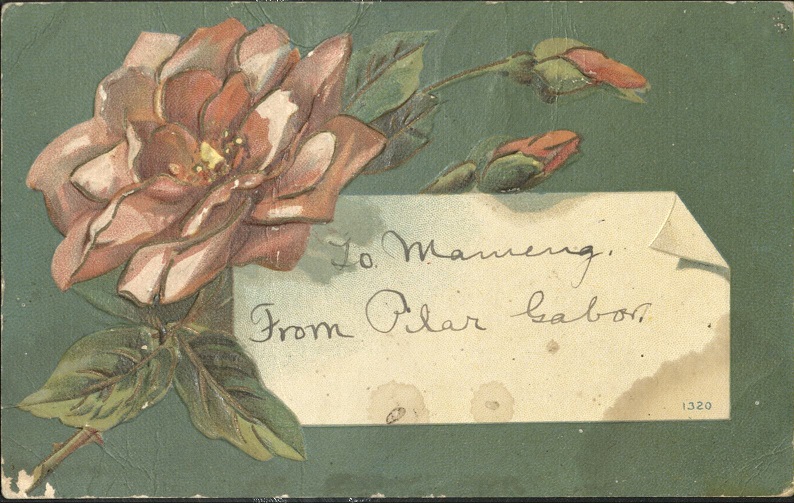 To Mameng.
From Pilar Gabor.
1320